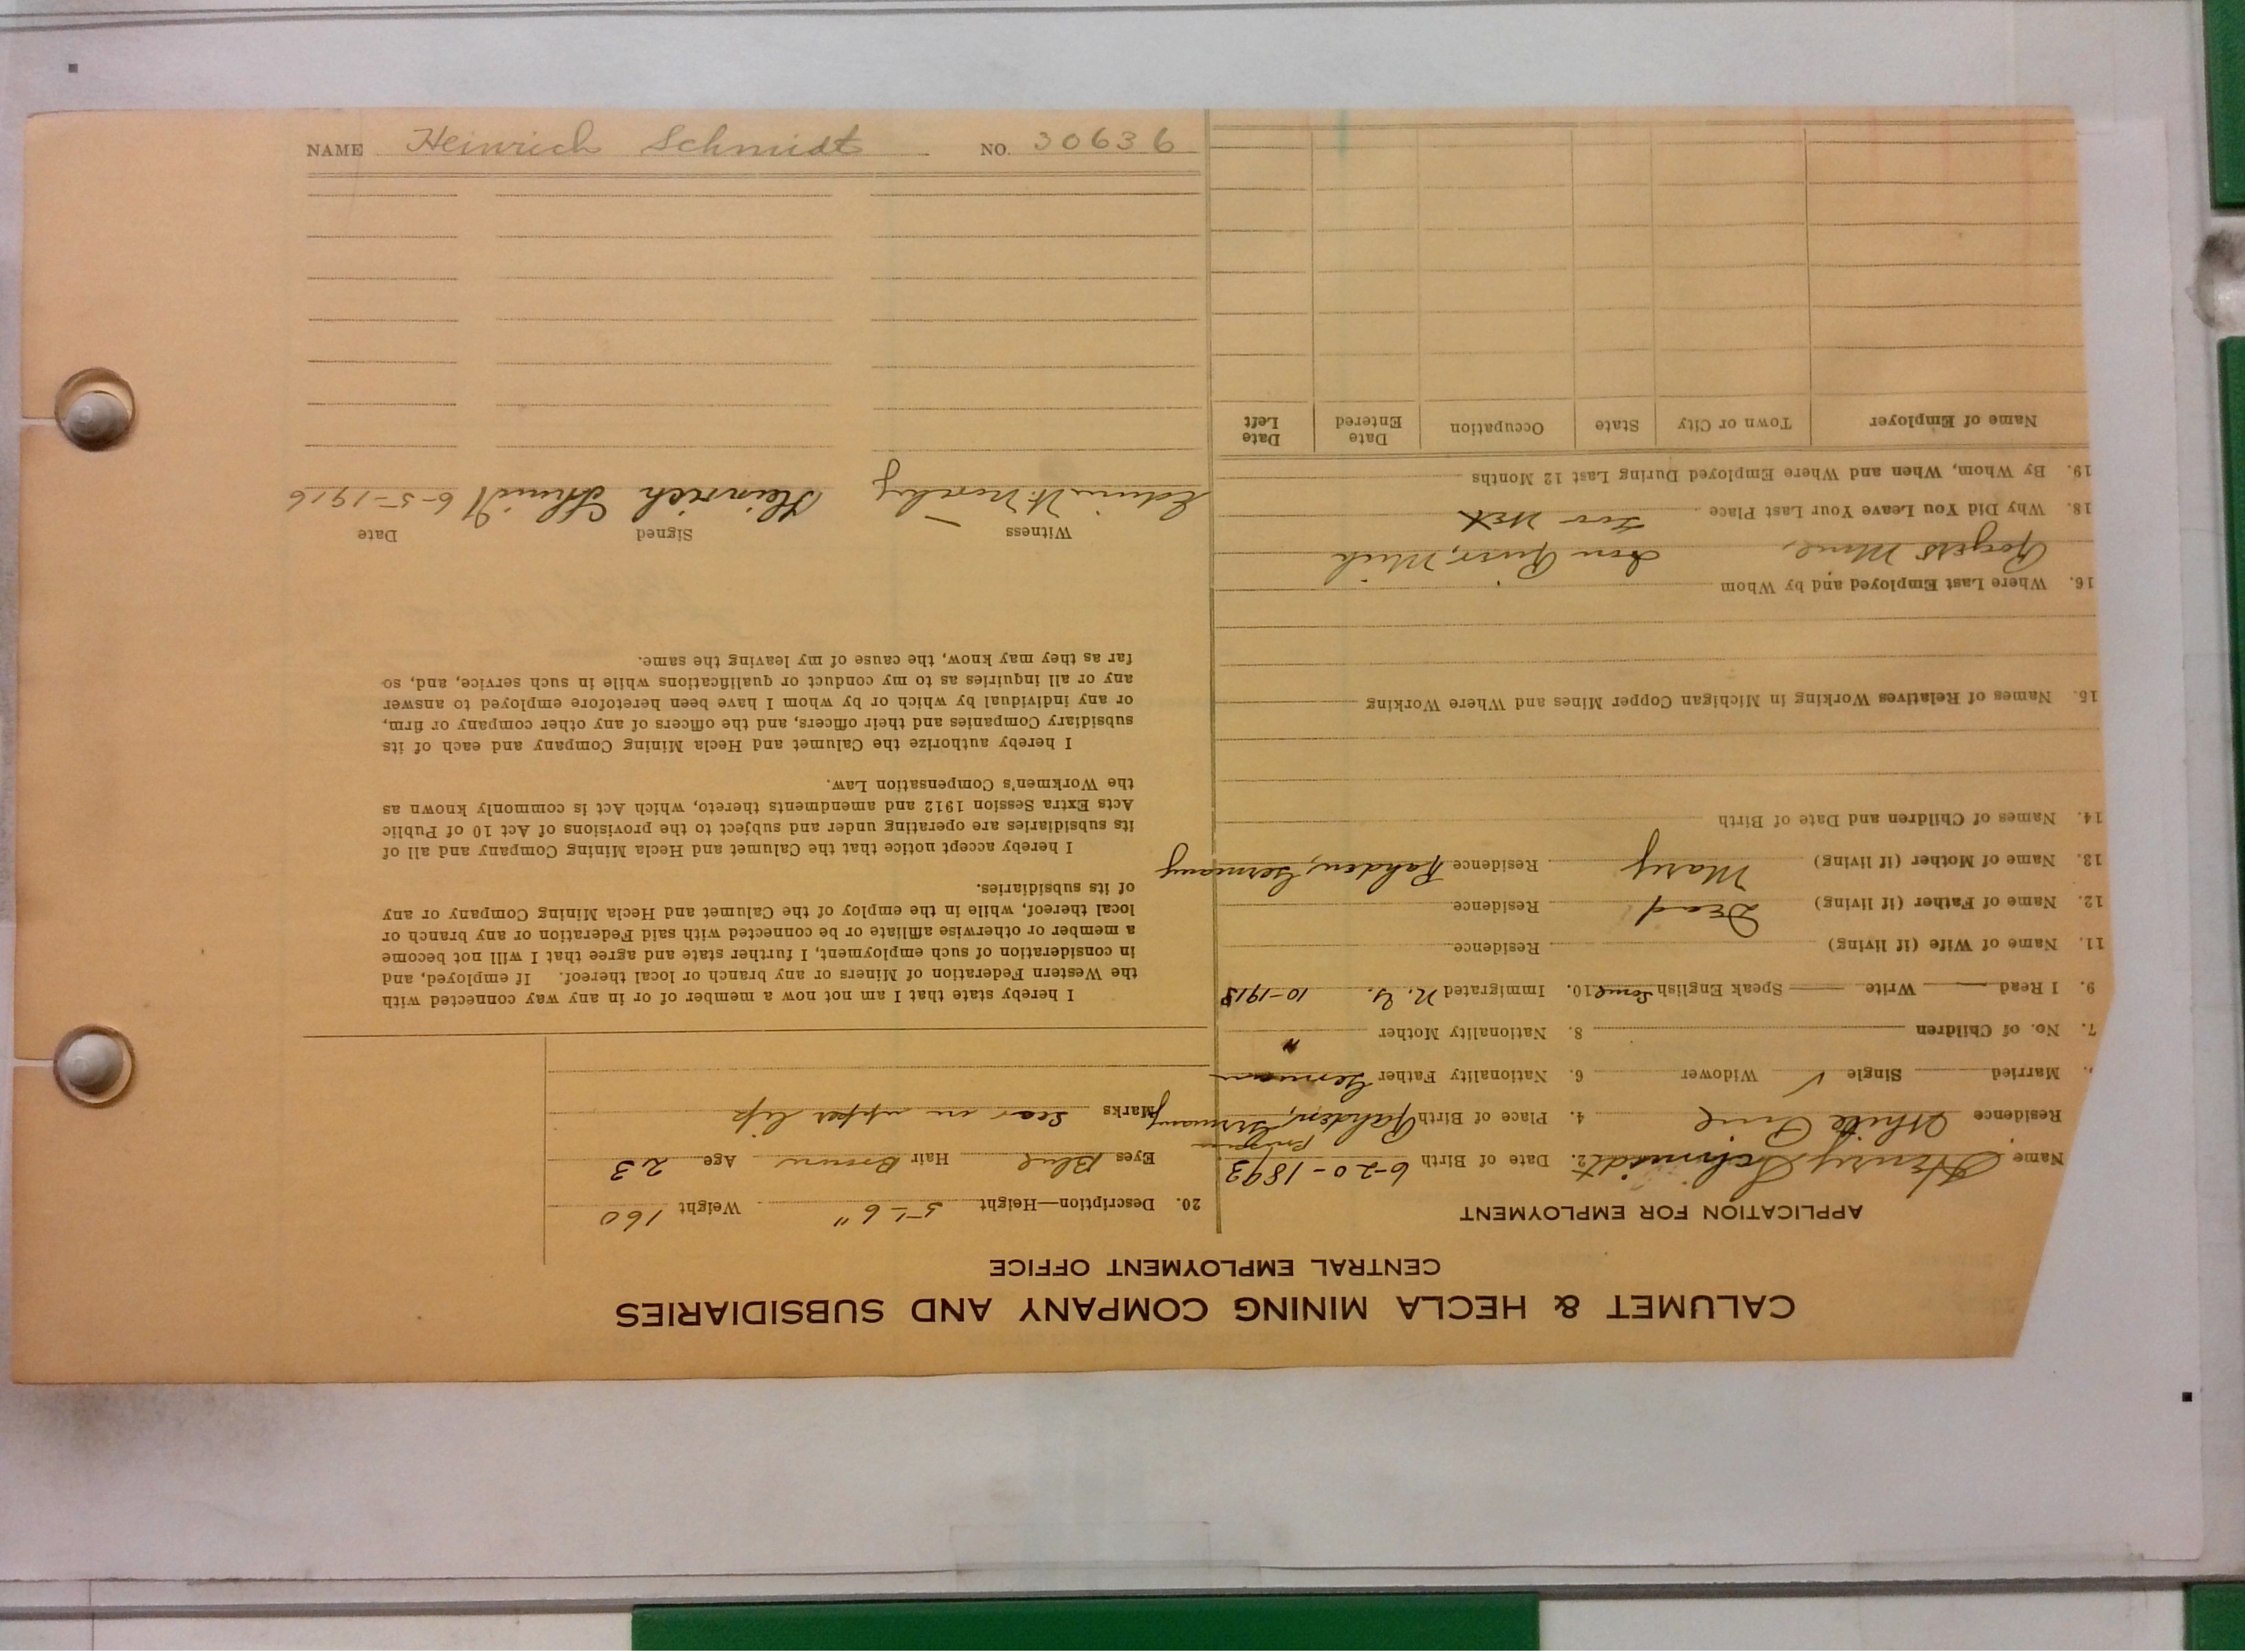 CALUMET & HECLA MINING COMPANY AND SUBSIDIARIES
CENTRAL EMPLOYMENT OFFICE
APPLICATION FOR EMPLOYMENT
Name Henry Schmidt 2. Date of Birth 6-20-1893
Residence White Pine 4. Place of Birth Rahden, Germany
Married Single ✓ Widower 6. Nationality Father German
7. No. of Children 8. Nationality Mother "
9. I Read — Write — Speak English Some 10. Immigrated N. Y. 10-1913
11. Name of Wife (if living) Residence
12. Name of Father (if living) Dead Residence
13. Name of Mother (if living) Mary Residence Rahden, Germany
14. Names of Children and Date of Birth
15. Names of Relatives Working in Michigan Copper Mines and Where Working
16. Where Last Employed and by Whom
Rogers Mine, Iron River, Mich
18. Why Did You Leave Your Last Place Too Wet
19. By Whom, When and Where Employed During Last 12 Months
Name of Employer Town or City State Occupation Date Entered Date Left
20. Description—Height 5'-6" Weight 160
Eyes Blue Hair Brown Age 23
Marks Scar on upper lip
I hereby state that I am not now a member of or in any way connected with
the Western Federation of Miners or any branch or local thereof. If employed, and
in consideration of such employment, I further state and agree that I will not become
a member or otherwise affiliate or be connected with said Federation or any branch or
local thereof, while in the employ of the Calumet and Hecla Mining Company or any
of its subsidiaries.
I hereby accept notice that the Calumet and Hecla Mining Company and all of
its subsidiaries are operating under and subject to the provisions of Act 10 of Public
Acts Extra Session 1912 and amendments thereto, which Act is commonly known as
the Workmen's Compensation Law.
I hereby authorize the Calumet and Hecla Mining Company and each of its
subsidiary Companies and their officers, and the officers of any other company or firm,
or any individual by which or by whom I have been heretofore employed to answer
any or all inquiries as to my conduct or qualifications while in such service, and, so
far as they may know, the cause of my leaving the same.
Witness Signed Date
Edwin W. Heinrich Schmidt 6-5-1916
NAME Heinrich Schmidt NO. 30636